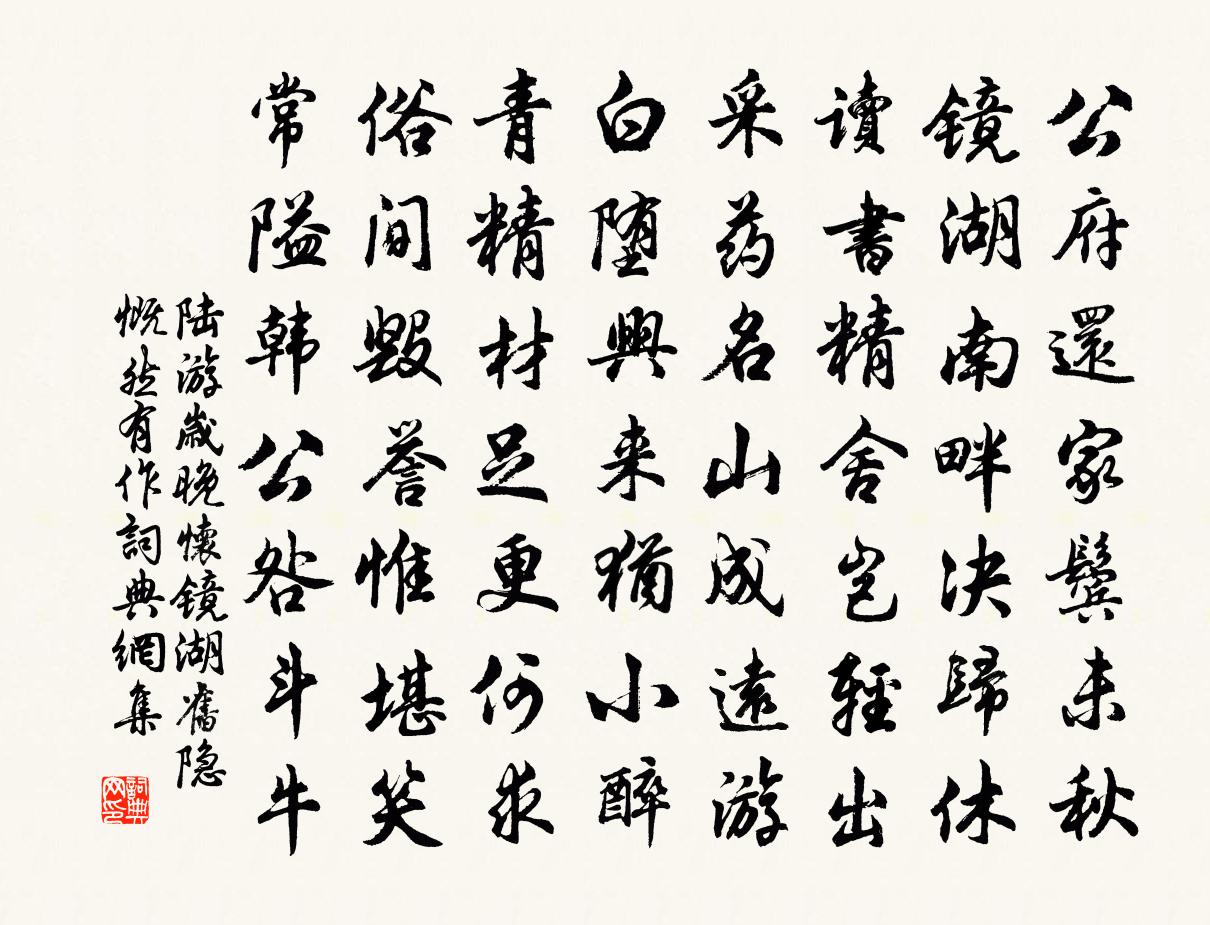 公府還家鬢未秋
鏡湖南畔决歸休
讀書精舍豈輕出
采药名山成遠游
白堕興来猶小醉
青精材足更何求
俗间毀誉惟堪笑
常隘韩公咎斗牛
陆游歲晚懷鏡湖舊隐
慨然有作詞典網集
詞典网印